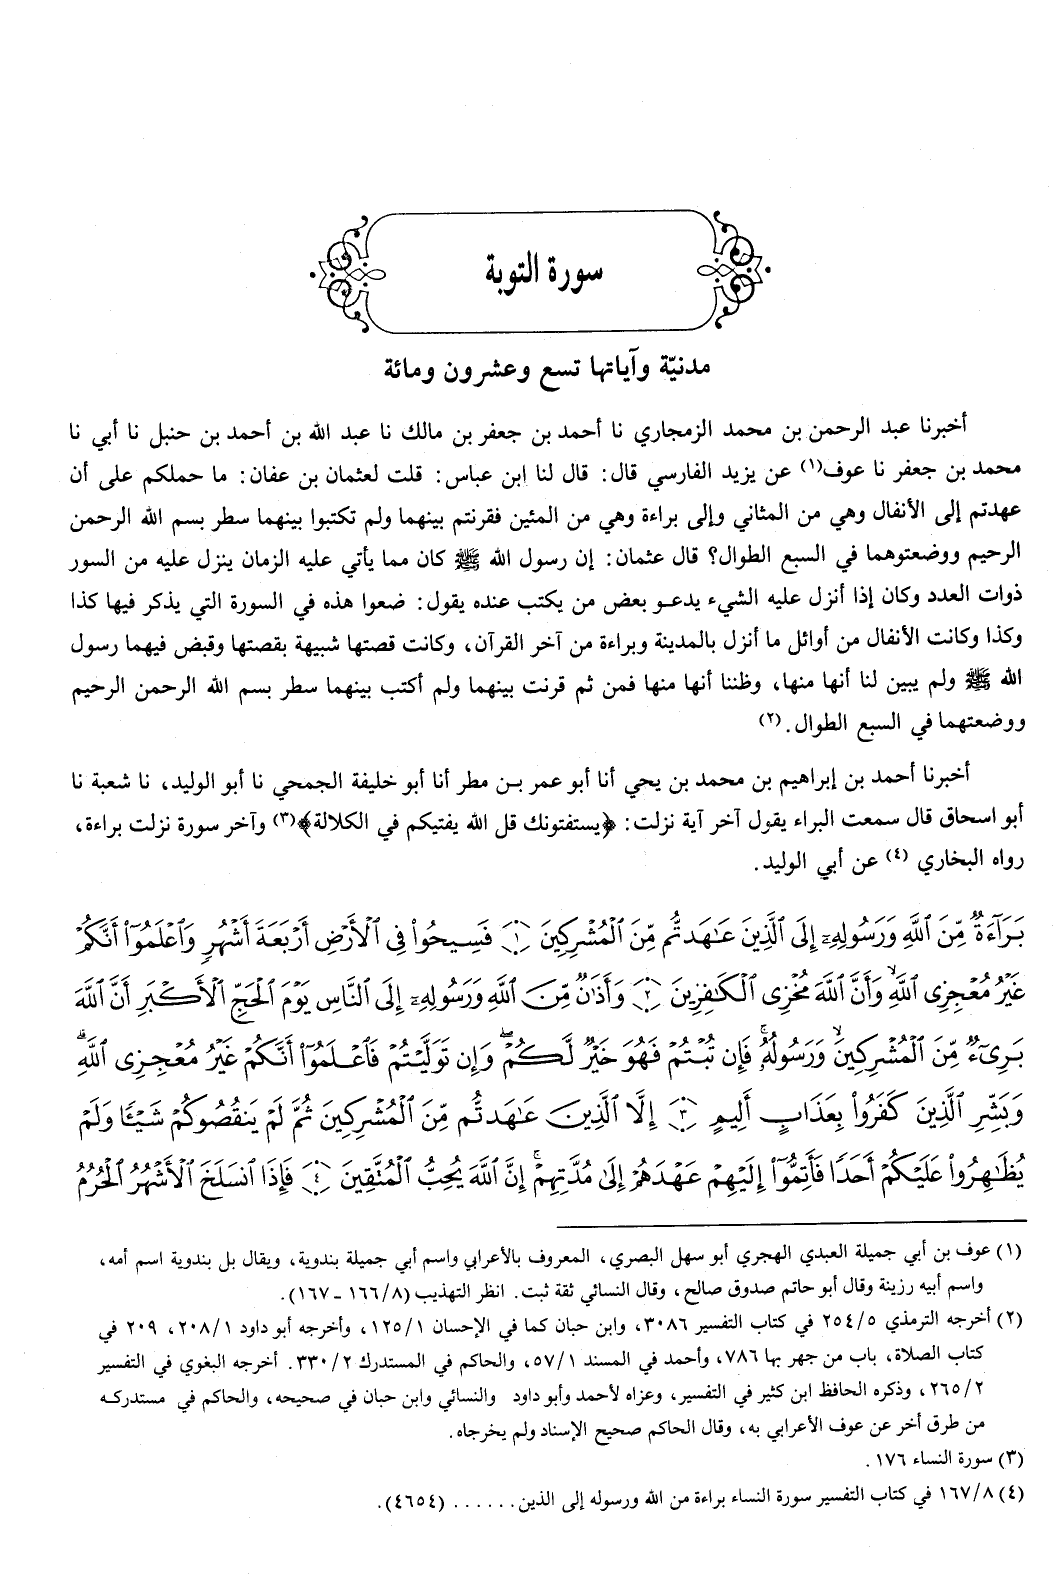 سورة التوبة
مدنيّة وآياتها تسع وعشرون ومائة
أخبرنا عبد الرحمن بن محمد الزمجاري نا أحمد بن جعفر بن مالك نا عبد الله بن أحمد بن حنبل نا أبي نا
محمد بن جعفر نا عوف(١) عن يزيد الفارسي قال: قال لنا إبن عباس: قلت لعثمان بن عفان: ما حملكم على أن
عهدتم إلى الأنفال وهي من المثاني وإلى براءة وهي من المئين فقرنتم بينهما ولم تكتبوا بينهما سطر بسم الله الرحمن
الرحيم ووضعتوهما في السبع الطوال؟ قال عثمان: إن رسول الله ﷺ كان مما يأتي عليه الزمان ينزل عليه من السور
ذوات العدد وكان إذا أنزل عليه الشيء يدعو بعض من يكتب عنده يقول: ضعوا هذه في السورة التي يذكر فيها كذا
وكذا وكانت الأنفال من أوائل ما أنزل بالمدينة وبراءة من آخر القرآن، وكانت قصتها شبيهة بقصتها وقبض فيهما رسول
الله ﷺ ولم يبين لنا أنها منها، وظننا أنها منها فمن ثم قرنت بينهما ولم أكتب بينهما سطر بسم الله الرحمن الرحيم
ووضعتهما في السبع الطوال.(٢)
أخبرنا أحمد بن إبراهيم بن محمد بن يحي أنا أبو عمر بن مطر أنا أبو خليفة الجمحي نا أبو الوليد، نا شعبة نا
أبو اسحاق قال سمعت البراء يقول آخر آية نزلت: ﴿يستفتونك قل الله يفتيكم في الكلالة﴾(٣) وآخر سورة نزلت براءة،
رواه البخاري (٤) عن أبي الوليد.
بَرَآءَةٌ مِّنَ ٱللَّهِ وَرَسُولِهِۦٓ إِلَى ٱلَّذِينَ عَٰهَدتُّم مِّنَ ٱلْمُشْرِكِينَ ﴿١﴾ فَسِيحُوا۟ فِى ٱلْأَرْضِ أَرْبَعَةَ أَشْهُرٍ وَٱعْلَمُوٓا۟ أَنَّكُمْ
غَيْرُ مُعْجِزِى ٱللَّهِ ۙ وَأَنَّ ٱللَّهَ مُخْزِى ٱلْكَٰفِرِينَ ﴿٢﴾ وَأَذَٰنٌ مِّنَ ٱللَّهِ وَرَسُولِهِۦٓ إِلَى ٱلنَّاسِ يَوْمَ ٱلْحَجِّ ٱلْأَكْبَرِ أَنَّ ٱللَّهَ
بَرِىٓءٌ مِّنَ ٱلْمُشْرِكِينَ ۙ وَرَسُولُهُۥ ۚ فَإِن تُبْتُمْ فَهُوَ خَيْرٌ لَّكُمْ ۖ وَإِن تَوَلَّيْتُمْ فَٱعْلَمُوٓا۟ أَنَّكُمْ غَيْرُ مُعْجِزِى ٱللَّهِ ۗ
وَبَشِّرِ ٱلَّذِينَ كَفَرُوا۟ بِعَذَابٍ أَلِيمٍ ﴿٣﴾ إِلَّا ٱلَّذِينَ عَٰهَدتُّم مِّنَ ٱلْمُشْرِكِينَ ثُمَّ لَمْ يَنقُصُوكُمْ شَيْـًٔا وَلَمْ
يُظَٰهِرُوا۟ عَلَيْكُمْ أَحَدًا فَأَتِمُّوٓا۟ إِلَيْهِمْ عَهْدَهُمْ إِلَىٰ مُدَّتِهِمْ ۚ إِنَّ ٱللَّهَ يُحِبُّ ٱلْمُتَّقِينَ ﴿٤﴾ فَإِذَا ٱنسَلَخَ ٱلْأَشْهُرُ ٱلْحُرُمُ
(١) عوف بن أبي جميلة العبدي الهجري أبو سهل البصري، المعروف بالأعرابي واسم أبي جميلة بندوية، ويقال بل بندوية اسم أمه،
واسم أبيه رزينة وقال أبو حاتم صدوق صالح، وقال النسائي ثقة ثبت. انظر التهذيب (٨/ ١٦٦ - ١٦٧).
(٢) أخرجه الترمذي ٥/ ٢٥٤ في كتاب التفسير ٣٠٨٦، وابن حبان كما في الإحسان ١/ ١٢٥، وأخرجه أبو داود ١/ ٢٠٨، ٢٠٩ في
كتاب الصلاة، باب من جهر بها ٧٨٦، وأحمد في المسند ١/ ٥٧، والحاكم في المستدرك ٢/ ٣٣٠. أخرجه البغوي في التفسير
٢/ ٢٦٥، وذكره الحافظ ابن كثير في التفسير، وعزاه لأحمد وأبو داود والنسائي وابن حبان في صحيحه، والحاكم في مستدركه
من طرق أخر عن عوف الأعرابي به، وقال الحاكم صحيح الإسناد ولم يخرجاه.
(٣) سورة النساء ١٧٦.
(٤) ٨/ ١٦٧ في كتاب التفسير سورة النساء براءة من الله ورسوله إلى الذين...... (٤٦٥٤).